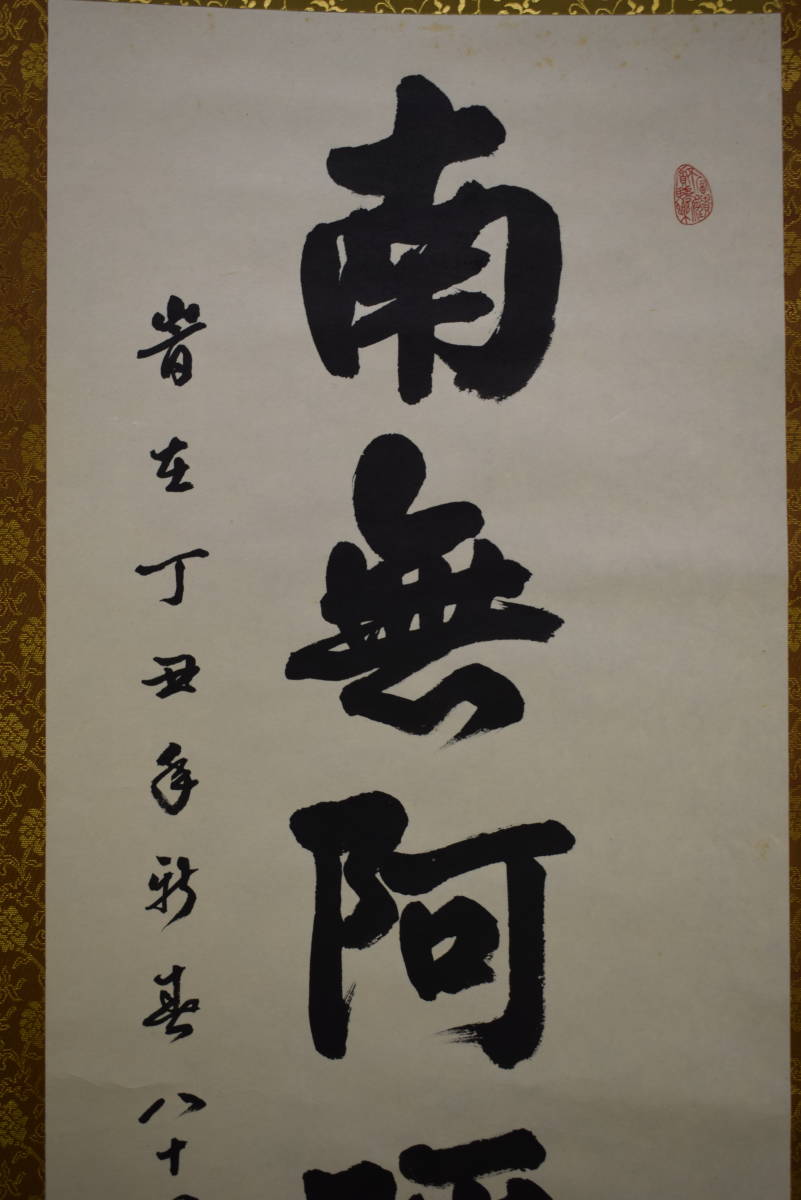 南無阿
在丁丑年新春八十